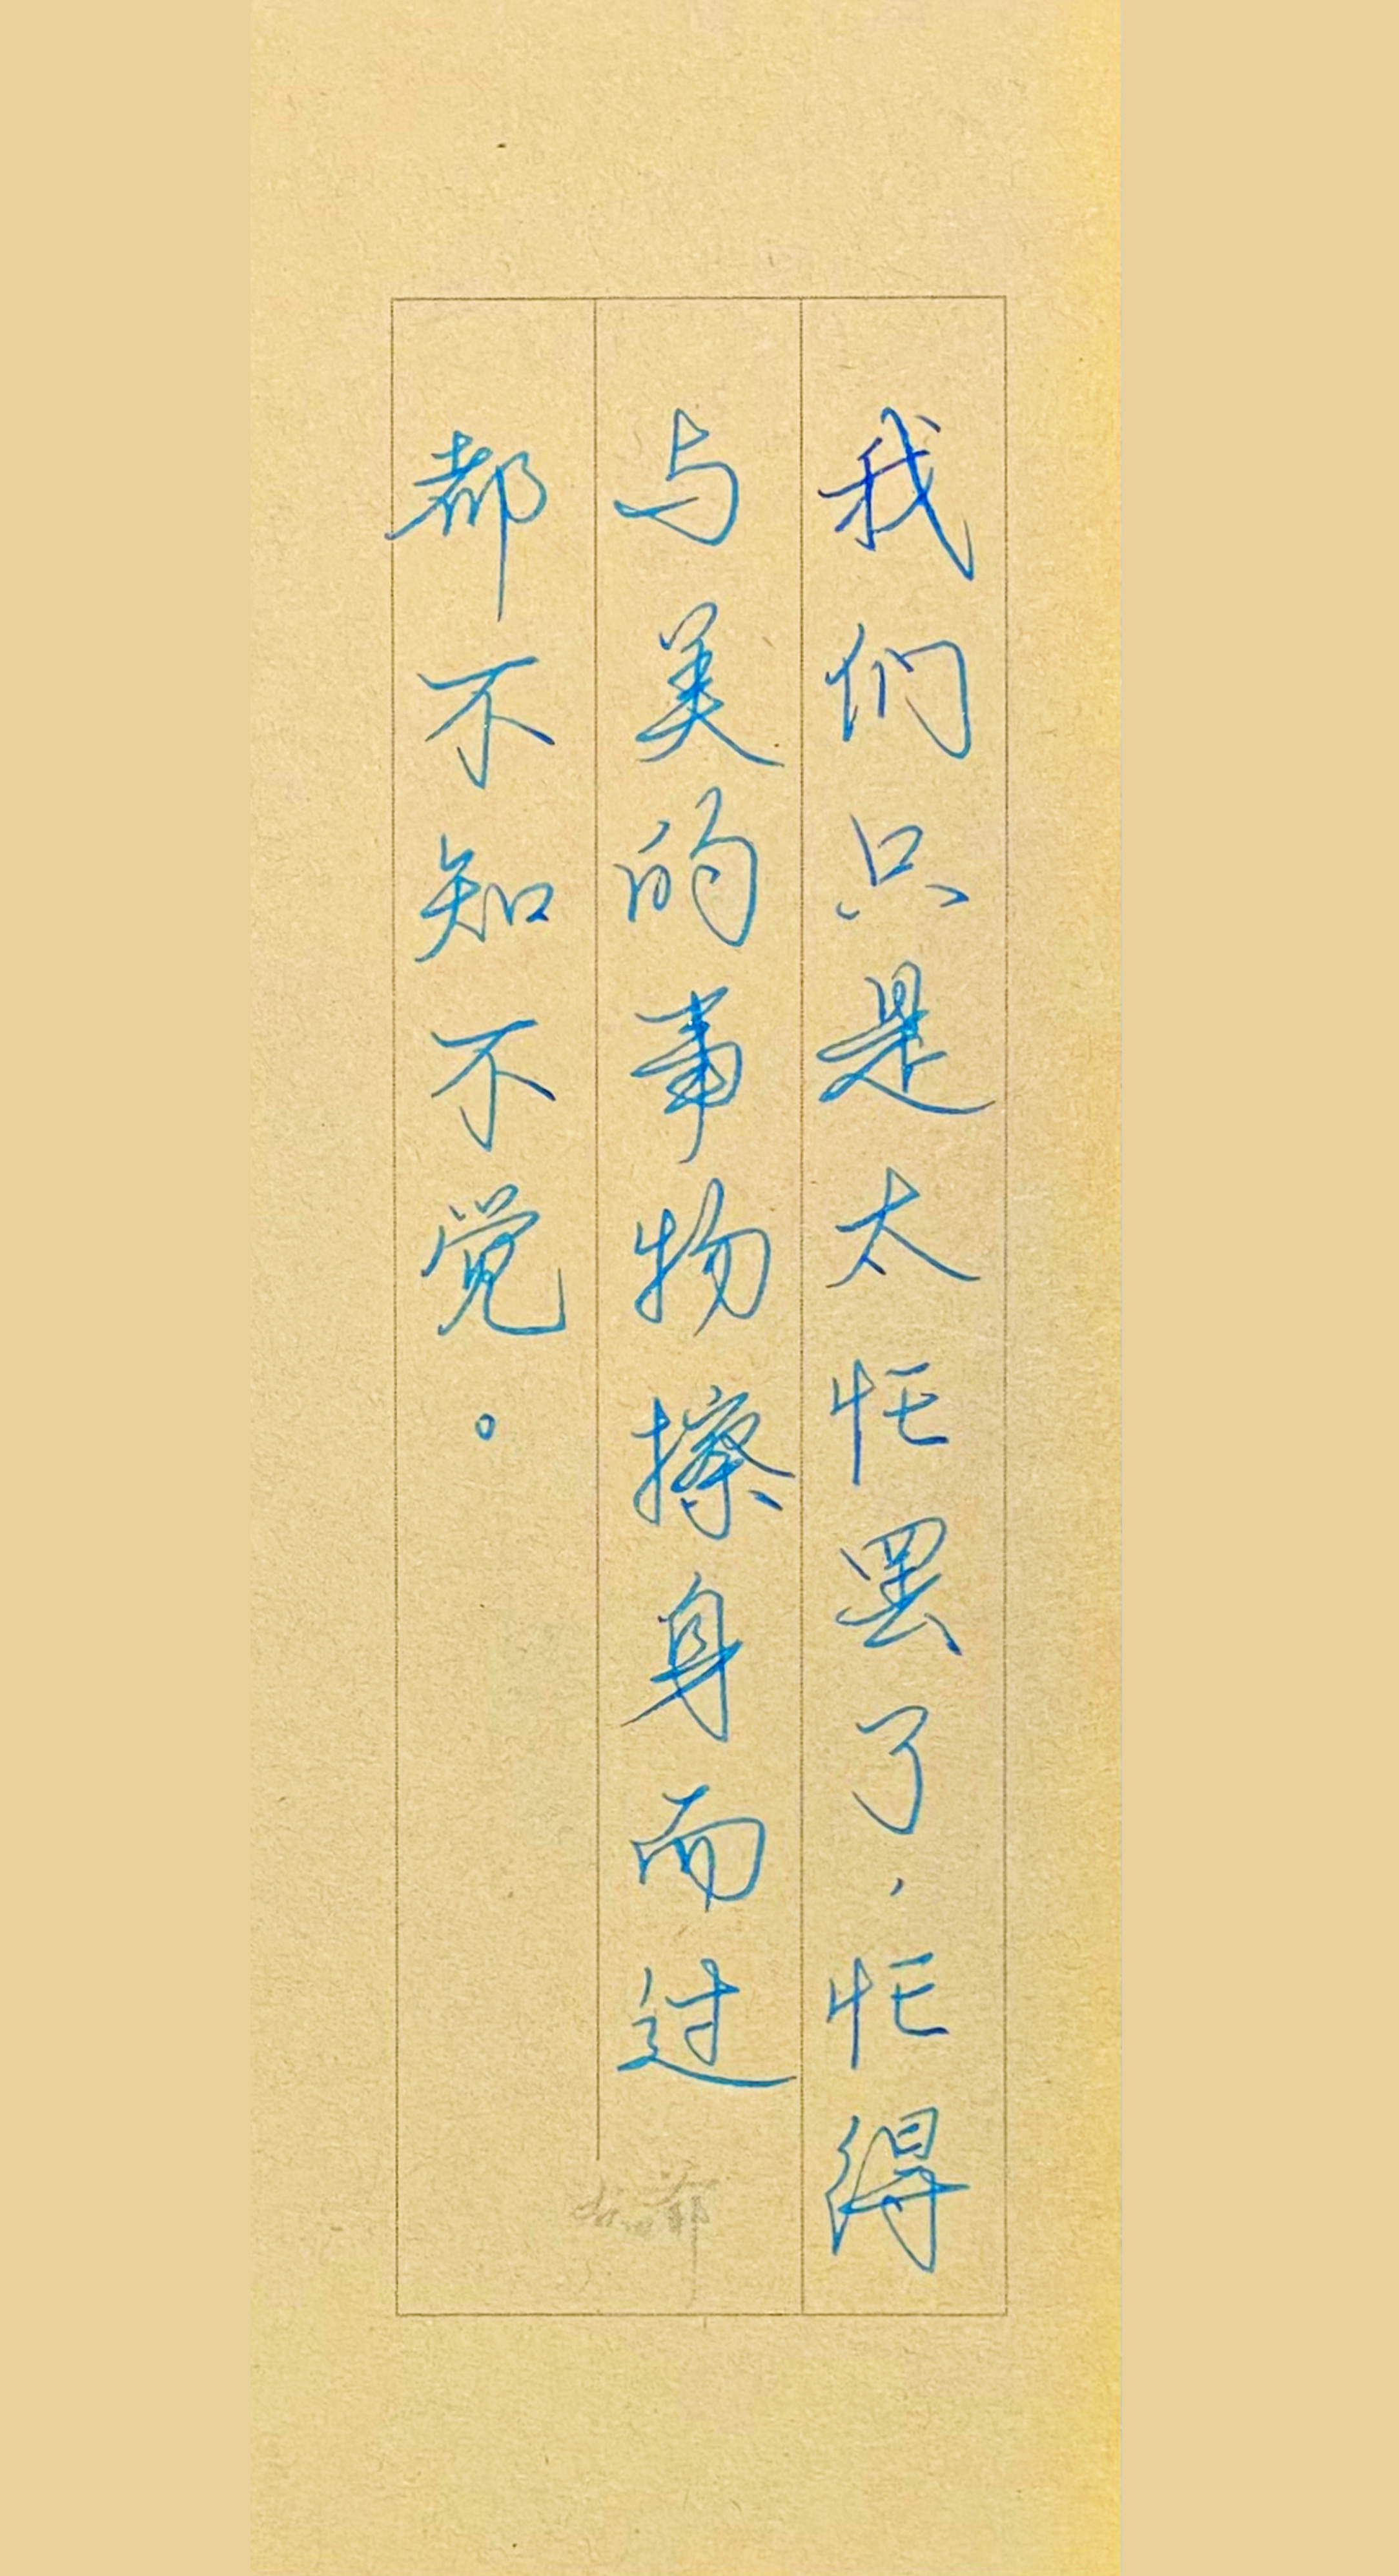 我们只是太忙罢了，忙得
与美的事物擦身而过
都不知不觉。